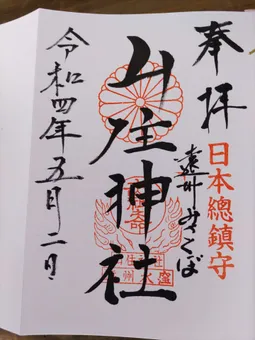 奉拝
日本總鎮守
遠州みさくぼ
山住神社
令和四年五月二日